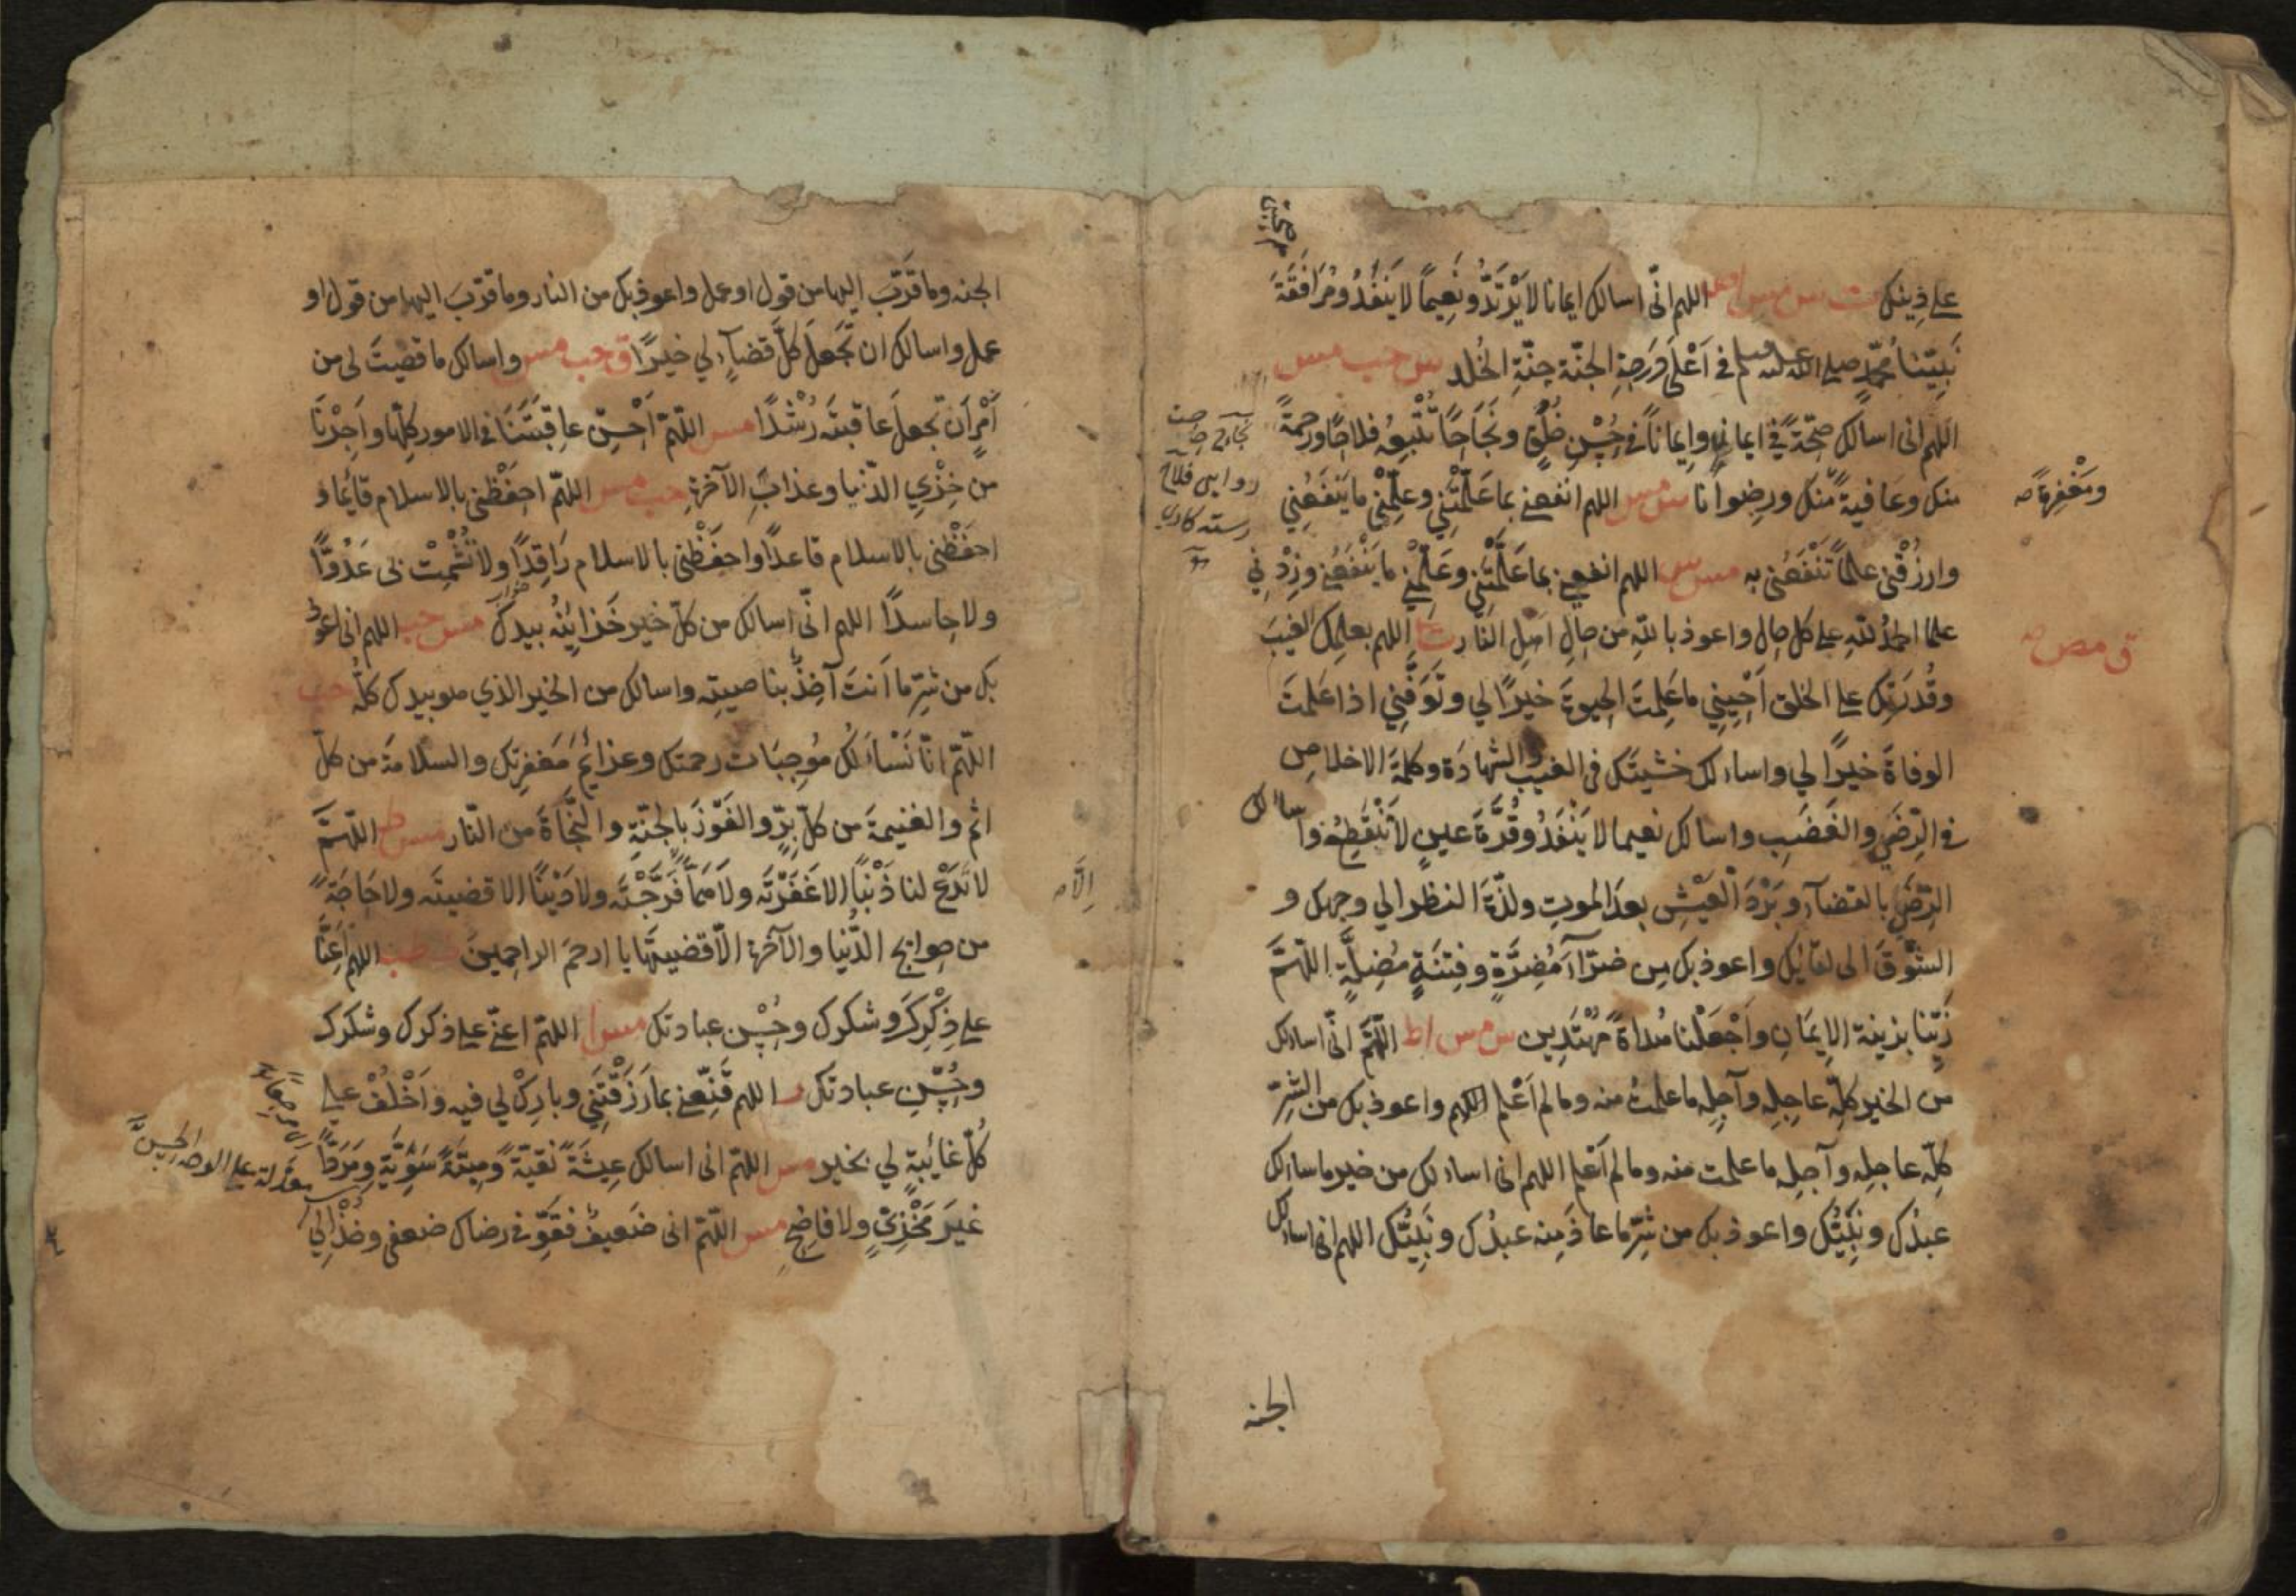 على دينك ت س مس ا اللهم انّي اسالك ايمانا لا يَرْتَدُّ ونَعِيماً لا يَنْفَدُ ومُرَافَقَةَ
نَبِيِّنَا مُحَمّدٍ صلى الله عليه وسلم في اَعْلَى دَرَجَةِ الجنّة جنّةِ الخُلد س حب مس
اللهم انى اسالك صِحّةً في ايمانٍ وايماناً في حُسْنِ خُلُقٍ ونَجَاحًا تُتْبِعُه فلاحًا ورحمةً
منك وعافيةً ومغفرةً منك ورضوانا س مس اللهم انفعنى بما عَلَّمْتَنِي وعلِّمْنى ما يَنْفَعُنِي
وارزُقْنى علمًا تَنْفَعُنى به مس س اللهم انفعنى بما عَلَّمْتَنِي وعَلِّمْنِي ما يَنْفَعُنِي وزِدْنِي
علما الحمدُ للهِ على كل حال واعوذ باللهِ من حالِ اهلِ النّار ت ق مص اللهم بعلمِك الغيبَ
وقُدرَتِك على الخلق اَحْيِنِي ما عَلِمتَ الحيوةَ خيرًا لي وتَوَفَّنِي اذا عَلمتَ
الوفاةَ خيرًا لي واسالك خشيتَك فى الغيب والشهادَة وكلمةَ الاخلاصِ
في الرّضَى والغَضَبِ واسالك نعيما لا يَنْفَدُ وقُرَّةَ عينٍ لا تَنْقَطِعُ واسالك
الرِّضَى بالقضآء وبَرْدَ العَيْشِ بعدَ الموتِ ولذّةَ النظر الى وجهك و
الشّوْقَ الى لقائك واعوذ بك من ضرّآءَ مُضِرَّةٍ وفِتنَةٍ مُضِلَّةٍ اللّهُمَّ
زَيِّنّا بزينة الايمَانِ واجْعَلْنا هُداةً مُهْتَدِين س مس ا ط اللّهُمّ انّى اسالك
من الخير كلّه عاجِلِه وآجِلِه ما علمتُ منه وما لم اَعْلم اللهم واعوذ بك من الشرّ
كلّه عاجله وآجلِه ما علمت منه وما لم اَعلم اللهم انى اسالك من خير ما سالك
عبدُك ونَبِيُّك واعوذ بك من شرّ ما عاذَ منه عبدُك ونَبِيُّك اللهم انى اسالك
الجنه
الجنه وما قَرّبَ اليها من قول او عمل واعوذ بك من النار وما قرّبَ اليها من قول او
عمل واسالك ان تَجعلَ كلَّ قضآءٍ لي خيرًا ق حب مس واسالك ما قضيتَ لى من
اَمْرٍ اَن تجعلَ عاقبتَه رُشْدًا مس اللّهمّ اَحْسِن عاقِبَتَنَا في الامور كلِّها واَجِرْنَا
من خِزْيِ الدّنيا وعذابِ الآخرةِ حب مس اللهمّ احفَظْنى بالاسلام قائما و
احفَظْنى بالاسلام قاعدًا واحفَظْنى بالاسلام رَاقِدًا ولا تُشْمِتْ بى عَدُوًّا
ولا حاسدًا اللهم انّى اسالك من كلّ خير خَزائِنُه بيدك مس حب اللهم انى اعوذ
بك من شرّ ما اَنتَ آخِذٌ بناصيتِه واسالك من الخير الذي هو بيدك كلُّه حب
اللّهمّ انّا نَسْاَلُك مُوجِبَات رحمتك وعزائمَ مَغفرتِك والسلامةَ من كلّ
اثم والغنيمةَ من كلّ بِرٍّ والفَوْزَ بالجنّةِ والنَّجَاةَ من النّار مس ط اللّهُمَّ
لا تَدَعْ لنا ذَنْبًا الا غَفَرْتَه ولا هَمًّا الاّ فَرَّجْتَه ولا دَيْنًا الا قضيتَه ولا حَاجَةً
من حوايج الدُّنيا والآخرة الاّ قضيتَها يا ارحَمَ الراحمينَ ط طب اللهم اَعِنَّا
على ذِكْرِكَ وشكرك وحُسْنِ عبادتك مس ا اللهمّ اعنّى على ذكرك وشكرك
وحُسْنِ عبادتك ر اللهم قَنِّعْنى بما رَزَقْتَنِي وبارِكْ لي فيه واَخْلُفْ على
كُلّ غائِبةٍ لي بخير مس اللّهمّ انى اسالك عِيشَةً نَقيّةً ومِيتَةً سَوِيَّةً ومَرَدًّا
غيرَ مَخْزِيٍّ ولا فاضحٍ مس اللّهمّ انى ضَعيفٌ فقَوِّ فى رضاك ضعفى وخُذْ الي